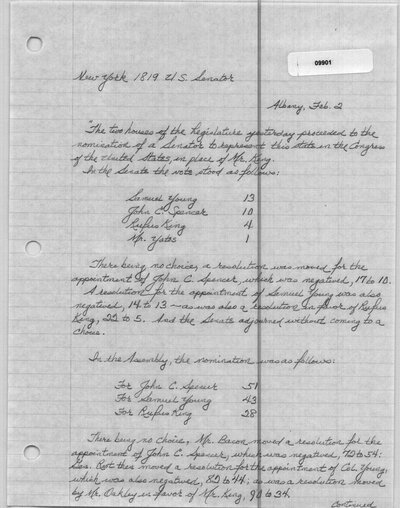 09901
New York 1819 U.S. Senator
Albany, Feb. 2
"The two houses of the Legislature yesterday proceeded to the
nomination of a Senator to represent this state in the Congress
of the United States, in place of Mr. King.
In the Senate the vote stood as follows:
Samuel Young 13
John C. Spencer 10
Rufus King 4
Mr. Yates 1
There being no choice, a resolution was moved for the
appointment of John C. Spencer, which was negatived, 17 to 10.
A resolution for the appointment of Samuel Young was also
negatived, 14 to 13 — as was also a resolution in favor of Rufus
King, 22 to 5. And the Senate adjourned without coming to a
choice.
In the Assembly, the nomination was as follows:
For John C. Spencer 51
For Samuel Young 43
For Rufus King 28
There being no choice, Mr. Bacon moved a resolution for the
appointment of John C. Spencer, which was negatived, 72 to 54:
Gen. Root then moved a resolution for the appointment of Col. Young,
which was also negatived, 82 to 44; as was a resolution moved
by Mr. Oakley in favor of Mr. King, 90 to 34.
Continued